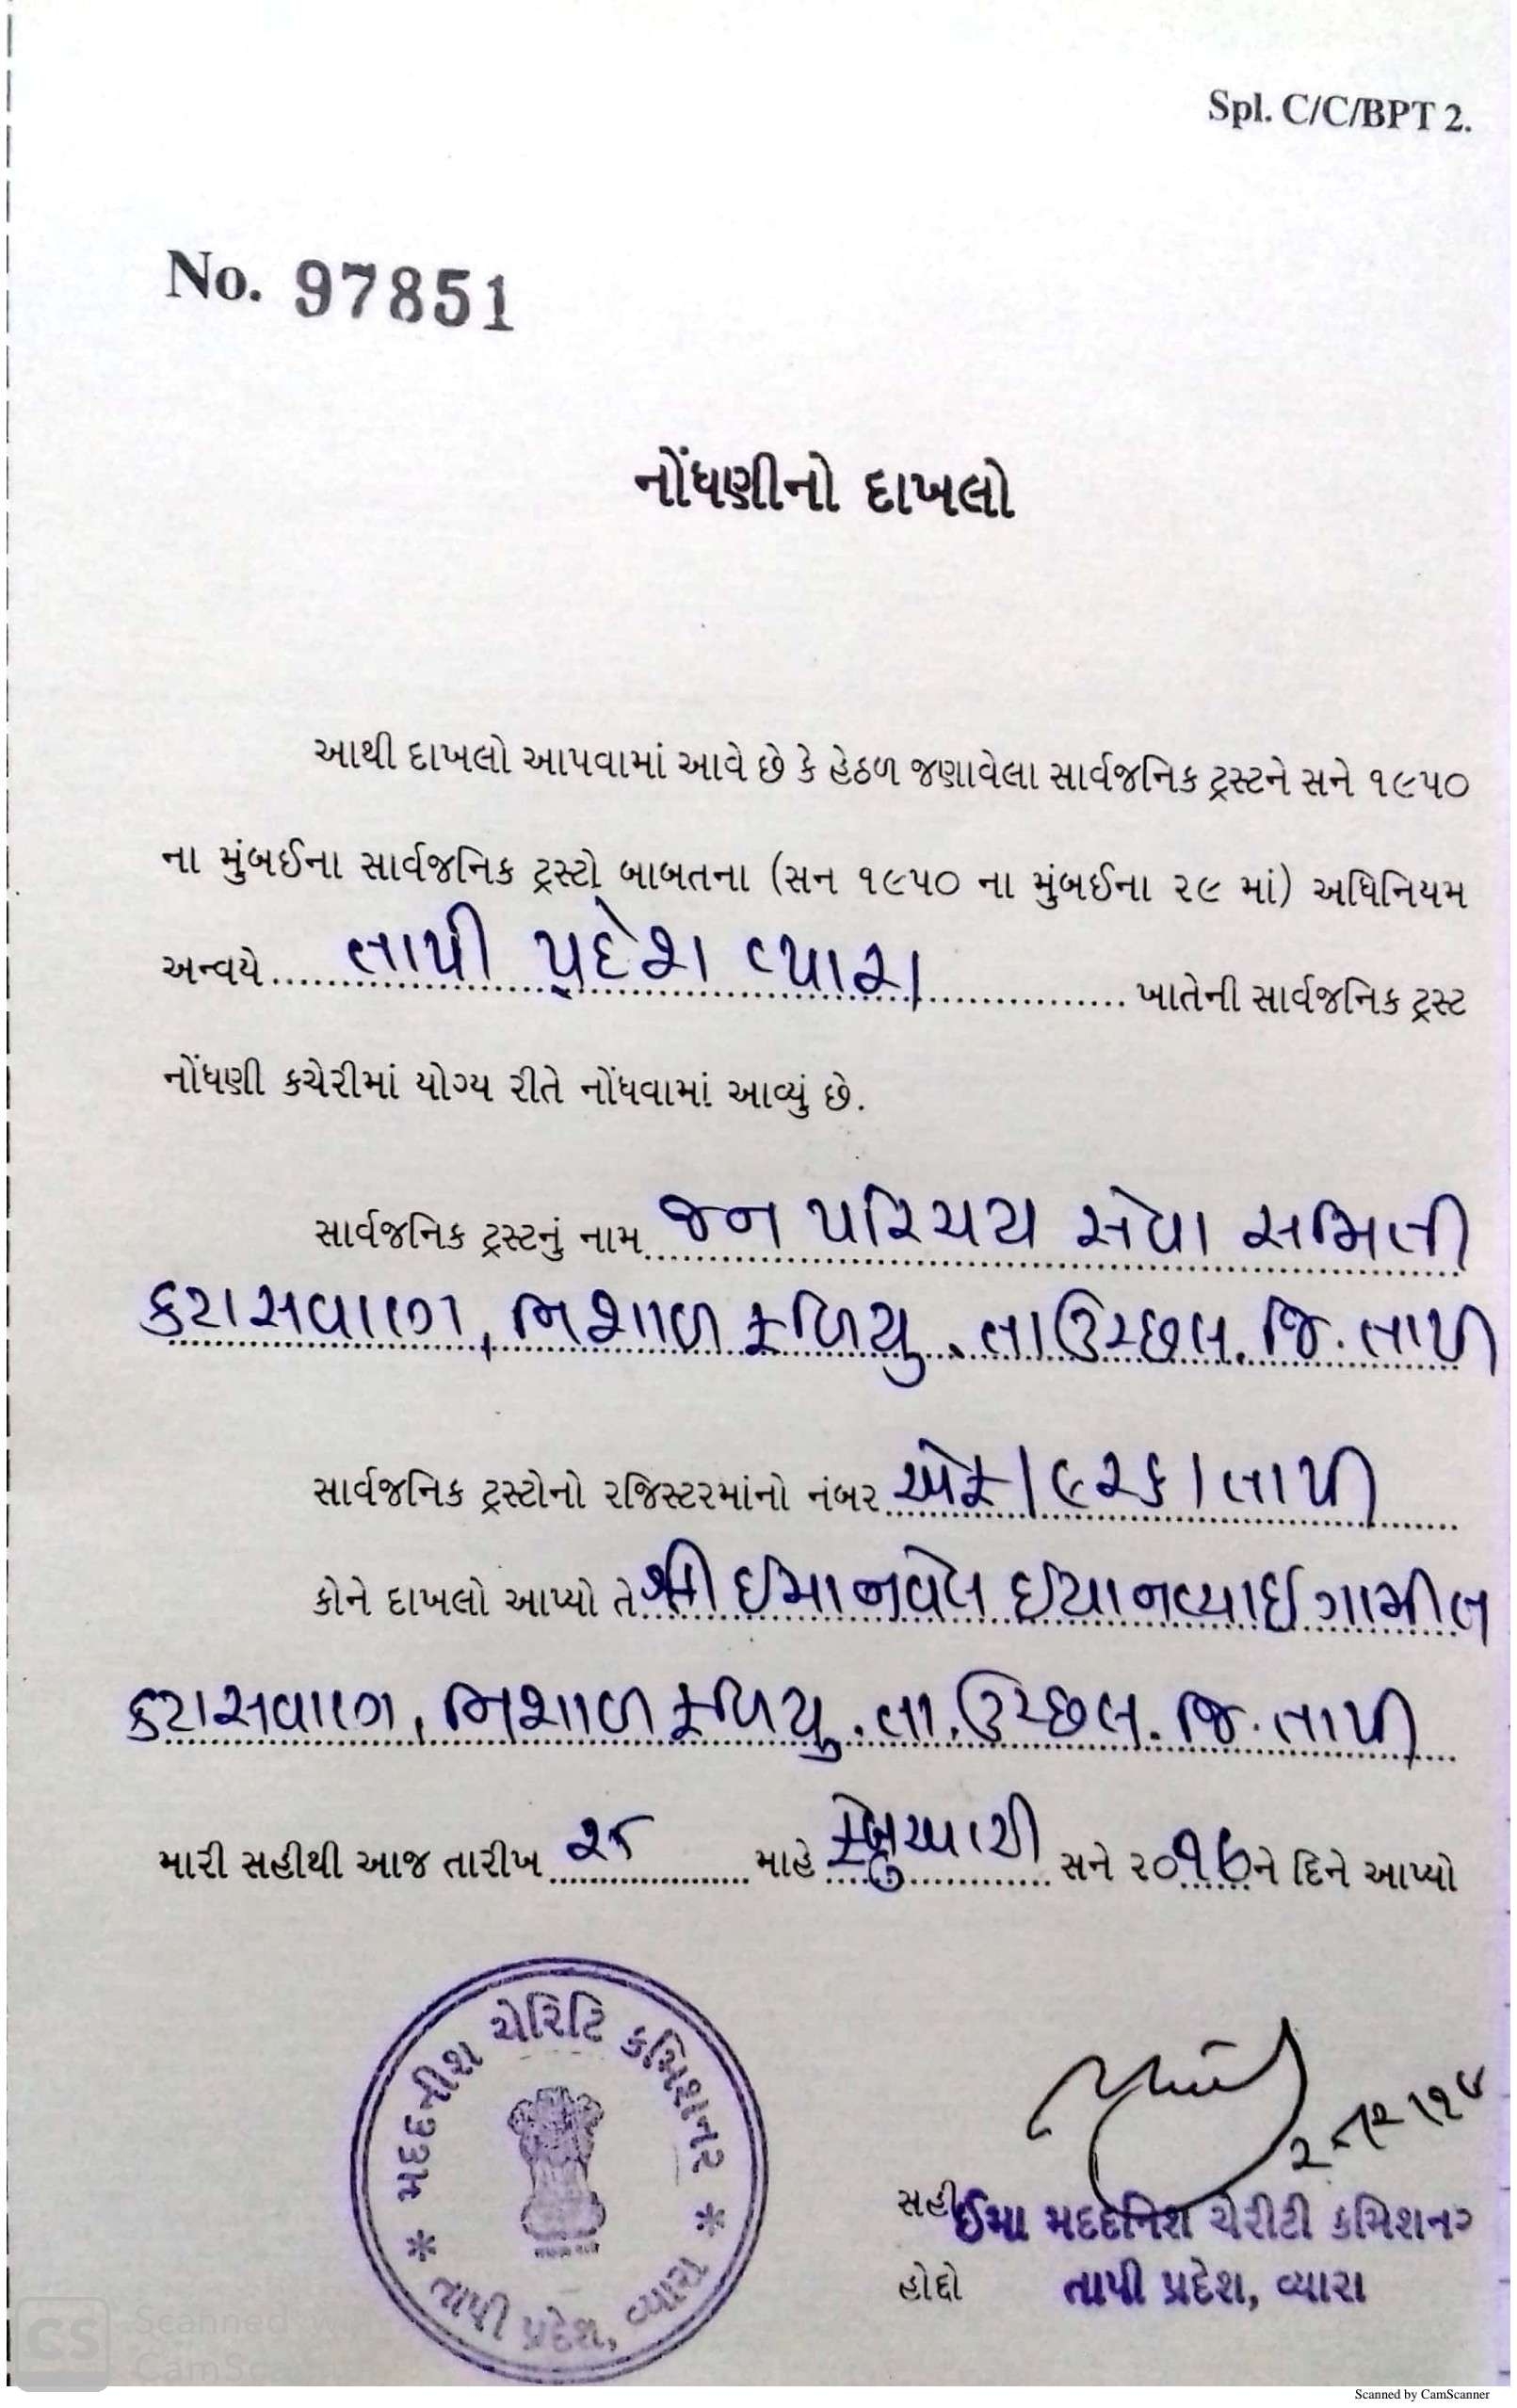 Spl. C/C/BPT 2.
No. 97851
નોંધણીનો દાખલો
આથી દાખલો આપવામાં આવે છે કે હેઠળ જણાવેલા સાર્વજનિક ટ્રસ્ટને સને ૧૯૫૦
ના મુંબઈના સાર્વજનિક ટ્રસ્ટો બાબતના (સન ૧૯૫૦ ના મુંબઈના ૨૯ માં) અધિનિયમ
અન્વયે તાપી પ્રદેશ વ્યારા ખાતેની સાર્વજનિક ટ્રસ્ટ
નોંધણી કચેરીમાં યોગ્ય રીતે નોંધવામાં આવ્યું છે.
સાર્વજનિક ટ્રસ્ટનું નામ જન પરિચય સેવા સમિતી
કટાસવાણ, નિશાળ ફળિયુ. તા ઉચ્છલ. જિ. તાપી
સાર્વજનિક ટ્રસ્ટોનો રજિસ્ટરમાંનો નંબર એફ/૯૨૬/તાપી
કોને દાખલો આપ્યો તે શ્રી ઈમાનવેલ ગામીત
કટાસવાણ, નિશાળ ફળિયુ. તા. ઉચ્છલ. જિ. તાપી
મારી સહીથી આજ તારીખ ૨૮ માહે ફેબ્રુઆરી સને ૨૦૧૭ ને દિને આપ્યો
મદદનીશ ચેરિટિ કમિશનર
* તાપી પ્રદેશ, વ્યારા *
સહી ઈચા મદદનિશ ચેરીટી કમિશનર
હોદ્દો તાપી પ્રદેશ, વ્યારા
CS Scanned with
CamScanner
Scanned by CamScanner